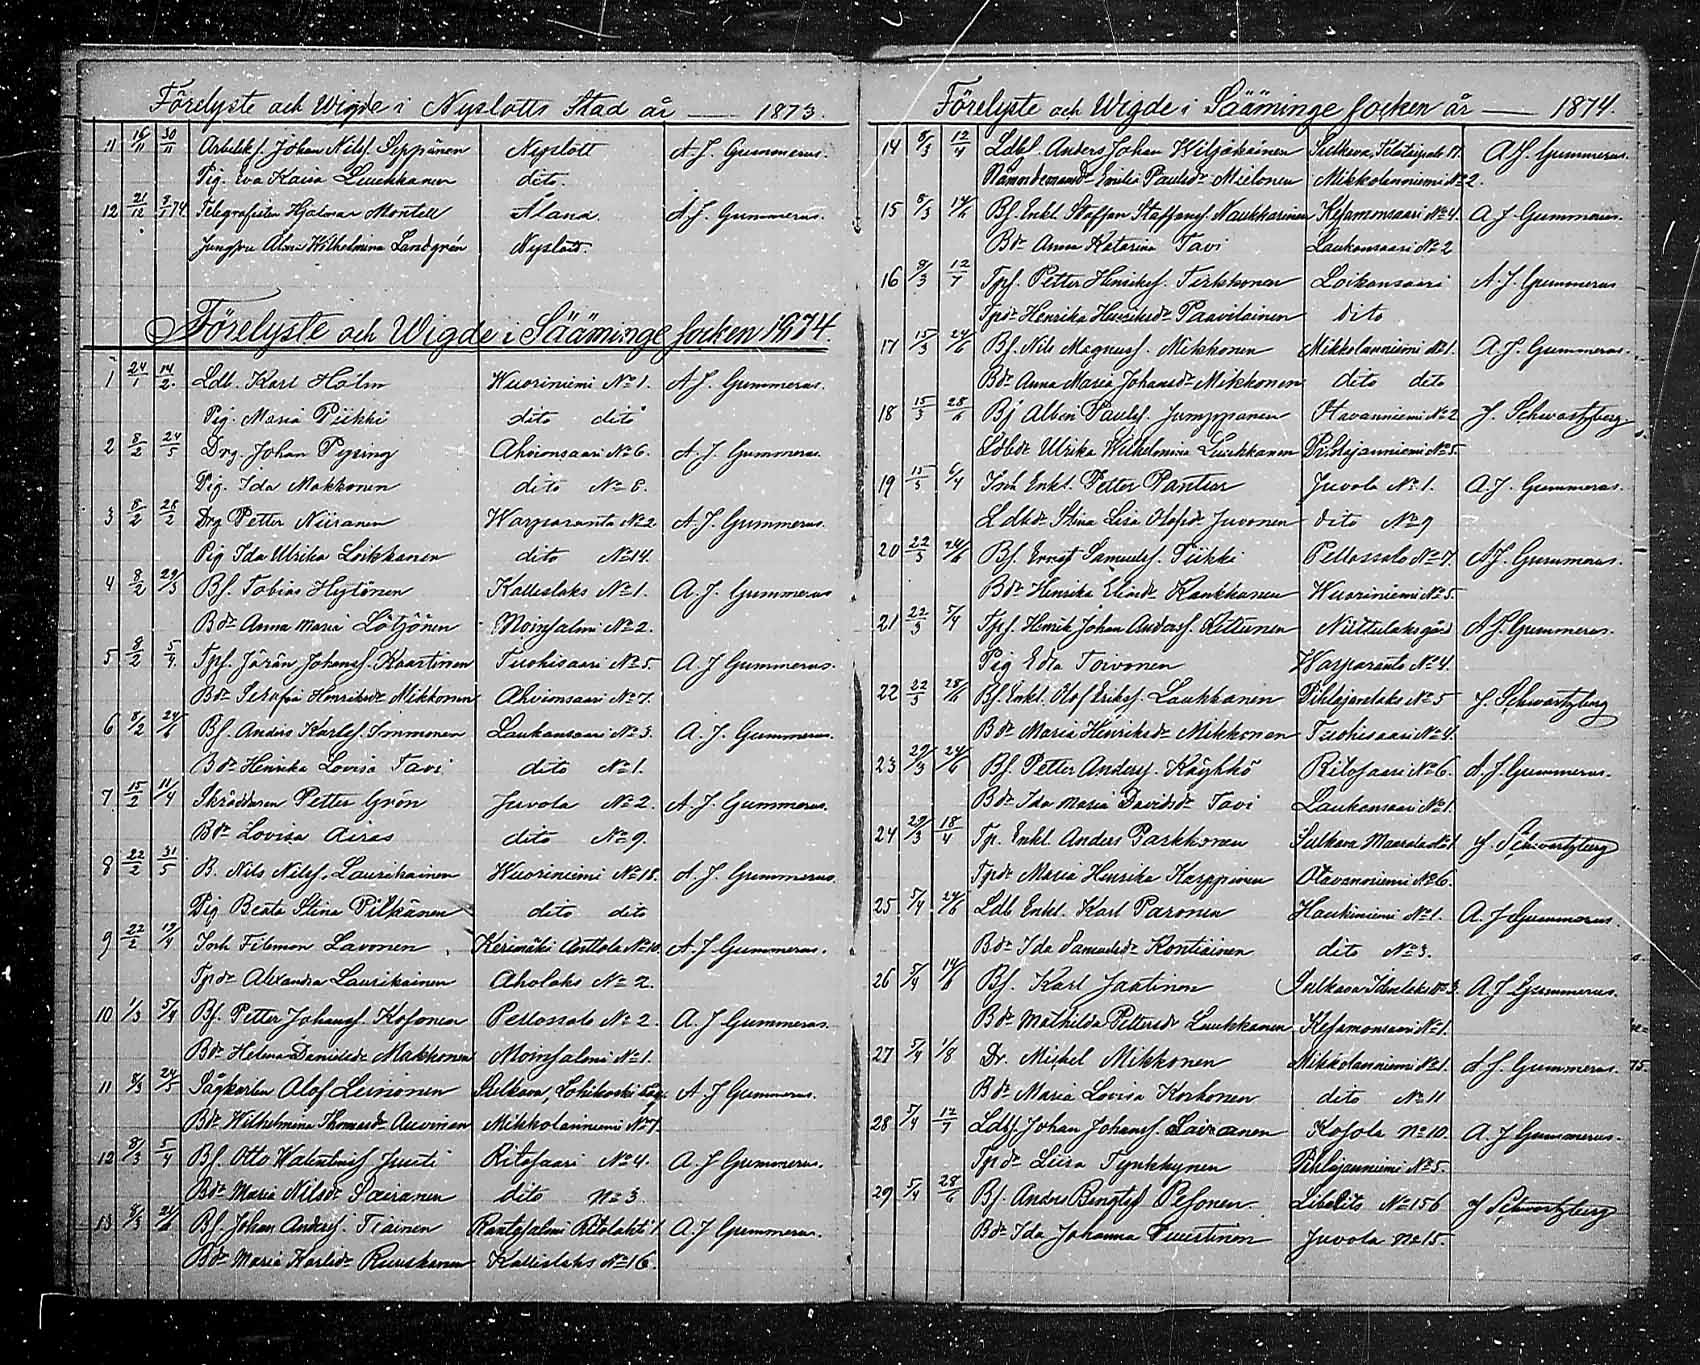 Förelyste och Wigde i Nyslotts Stad år — 1873.
11 16/11 30/11 Arbetsk. Johan Nilss. Seppänen Nyslott A. J. Gummerus.
Pig. Eva Kaisa Luukkanen dito.
12 21/12 8/1 74 Telegrafisten Hjalmar Montell Åland. A. J. Gummerus.
Jungfru Alma Wilhelmina Landgrén Nyslott.
Förelyste och Wigde i Sääminge socken 1874.
1 24/1 14/2. Ldb. Karl Holm Wuoriniemi No 1. A. J. Gummerus.
Pig. Maria Piikki dito dito
2 8/2 24/5 Drg. Johan Pipsing Ahvionsaari No 6. A. J. Gummerus.
Pig. Ida Makkonen dito No 8.
3 8/2 28/2 Drg Petter Niiranen Warparanta No 2 A. J. Gummerus.
Pig Ida Ulrika Loikkanen dito No 14.
4 8/2 29/3 Bf. Tobias Hytönen Kallislaks No 1. A. J. Gummerus
Bdr Anna Maria Lötjönen Moinsalmi No 2.
5 8/2 5/4 Tpf. Jörän Johanss. Kaartinen Tuohisaari No 5 A J Gummerus.
Bdr Serafia Henriksdr Mikkonen Ahvionsaari No 7.
6 8/2 24/6 Bf. Anders Karlss. Immonen Laukansaari No 3. A. J. Gummerus.
Bdr Henrika Lovisa Tavi dito No 1.
7 15/2 11/4 Skräddaren Petter Grön Juvola No 2. A. J. Gummerus.
Bdr Lovisa Aires dito No 9.
8 22/2 31/5 B. Nils Nilss. Laurikainen Wuoriniemi No 18. A. J. Gummerus.
Pig Beata Stina Pilkänen dito dito
9 22/2 19/4 Inh Filemon Lavonen Kerimäki Anttola No 10. A. J. Gummerus.
Tpdr Alexandra Laurikainen Aholaks No 2.
10 1/3 5/4 Bf. Petter Johanss. Kosonen Pellossalo No 2. A. J Gummerus.
Bdr Helena Danielsdr Makkonen Moinsalmi No 1.
11 8/3 24/5 Sågkarlen Olof Leinonen Sulkava, Lohikoski såg. A J Gummerus.
Bdr Wilhelmina Thomasdr Auvinen Mikkolanniemi No 7.
12 8/3 5/4 Bf. Otto Walentinss Juuti Ritosaari No 4. A. J Gummerus.
Bdr Maria Nilsdr Sairanen dito No 3.
13 8/3 24/6 Bf. Johan Anderss. Tiainen Rantasalmi Ritolahti 1. A. J Gummerus.
Bdr Maria Karlsdr Ruuskanen Kallislaks No 16.
Förelyste och Wigde i Sääminge socken år — 1874.
14 8/3 12/4 Ldbf. Anders Johan Wiljakainen Sulkava, A J. Gummerus.
Nämndemansdr Emilia Paulsdr Mielonen Mikkolanniemi No 2.
15 8/3 14/6 Bf. Enkl. Staffan Staffanss Naukkarinen Kesamonsaari No 4. A J Gummerus.
Bdr Anna Katarina Tavi Laukansaari No 2
16 8/3 12/7 Tpf. Petter Henrikss. Tirkkonen Loikansaari A J. Gummerus
Tpdr Henrika Henriksdr Paavilainen dito
17 15/3 24/6 Bf. Nils Magnuss. Mikkonen Mikkolanniemi No 1. A J. Gummerus.
Bdr Anna Maria Johansdr Mikkonen dito dito
18 15/3 28/6 Bf Albin Paulss. Jumppanen Otavanniemi No 2 J. Schwartzberg
Ldbdr Ulrika Wilhelmina Luukkanen Pihlajanniemi No 5.
19 15/3 6/4 Inh Enkl. Petter Pantsar Juvola No 1. A. J. Gummerus.
Ldbdr Stina Lisa Olofsdr Juvonen dito No 9
20 22/3 24/6 Bf. Ernst Samuelss. Piikki Pellossalo No 7. A J. Gummerus.
Bdr Henrika Eliasdr Kankkunen Wuoriniemi No 5.
21 22/3 5/4 Tpf. Henrik Johan Anderss. Ritunen Niittulaks gård A J. Gummerus.
Pig Edla Toivonen Warparanta No 4.
22 22/3 28/6 Bf. Enkl. Olof Erikss. Laukkanen Pihlajavelaks No 5 J. Schwartzberg
Bdr Maria Henriksdr Mikkonen Tuohisaari No 4.
23 29/3 24/6 Bf. Petter Anderss. Käyhkö Ritosaari No 6. A. J Gummerus.
Bdr Ida Maria Davidsdr Tavi Laukansaari No 1.
24 29/3 18/4 Tp. Enkl. Anders Parkkonen Sulkava Maarala No 1 J. Schwartzberg
Tpdr Maria Henrika Karppinen Otavanniemi No 6.
25 5/4 24/6 Ldb Enkl. Karl Paronen Haukiniemi No 1. A. J Gummerus.
Bdr Ida Samuelsdr Kontiainen dito No 3.
26 5/4 14/6 Bf. Karl Jaatinen Sulkava Idenlaks No 3. A J Gummerus.
Bdr Mathilda Pettersdr Luukkanen Kesamonsaari No 1.
27 5/4 1/8 Dr. Mickel Mikkonen Mikkolanniemi No 1. A J. Gummerus.
Bdr Maria Lovisa Korhonen dito No 11
28 5/4 12/7 Ldbf. Johan Johanss. Sairanen Kosola No 10. A. J Gummerus.
Tpdr Liisa Tynkkynen Pihlajanniemi No 5.
29 5/4 28/6 Bf. Anders Bengtss Pesonen Libelits No 156 J Schwartzberg
Bdr Ida Johanna Puustinen Juvola No 15.